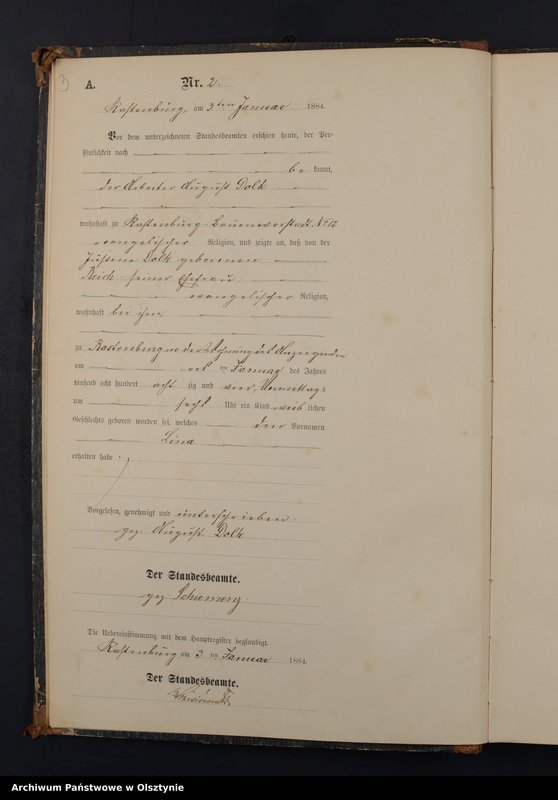 3
A. Nr. 2.
Rastenburg, am 3ten Januar 1884.
Vor dem unterzeichneten Standesbeamten erschien heute, der Per-
sönlichkeit nach
be kannt,
der Arbeiter August Dolk
wohnhaft zu Rastenburg No 12
evangelischer Religion, und zeigte an, daß von der
Justine Dolk geborenen
Reich seiner Ehefrau
evangelischer Religion,
wohnhaft bei ihm,
zu Rastenburg in der Wohnung des Anzeigenden
am ten Januar des Jahres
tausend acht hundert acht zig und vier, Vormittags
um sechs Uhr ein Kind weib lichen
Geschlechts geboren worden sei, welches den Vornamen
Lina
erhalten habe.
Vorgelesen, genehmigt und unterschrieben
gez August Dolk
Der Standesbeamte.
gez
Die Uebereinstimmung mit dem Hauptregister beglaubigt.
Rastenburg am 3 ten Januar 1884.
Der Standesbeamte.
Archiwum Państwowe w Olsztynie